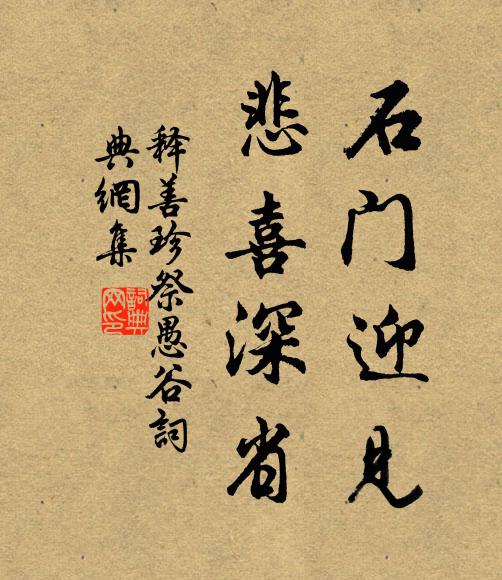 石门迎见
悲喜深省
释善珍祭愚谷词
典網集
詞典网印